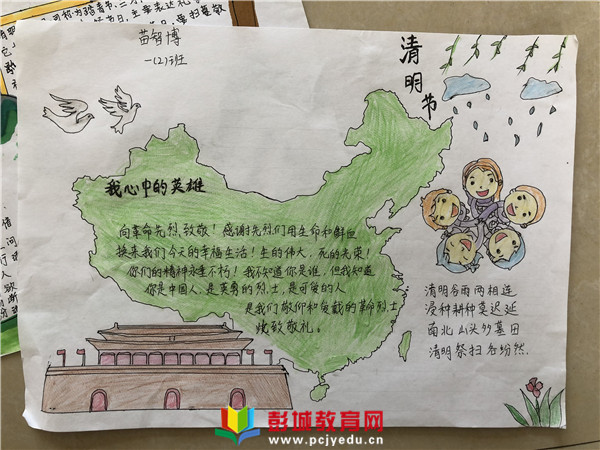 苗智博
一(2)班
清明节
我心中的英雄
向革命先烈致敬！感谢先烈们用生命和鲜血
换来我们今天的幸福生活！生的伟大，死的光荣！
你们的精神永垂不朽！我不知道你是谁，但我知道
你是中国人，是英勇的烈士，是可爱的人
是我们敬仰和爱戴的革命烈士
致敬礼。
清明谷雨两相连
浸种耕种莫迟延
南北山头多墓田
清明祭扫各纷然.
彭城教育网
www.pcjyedu.cn